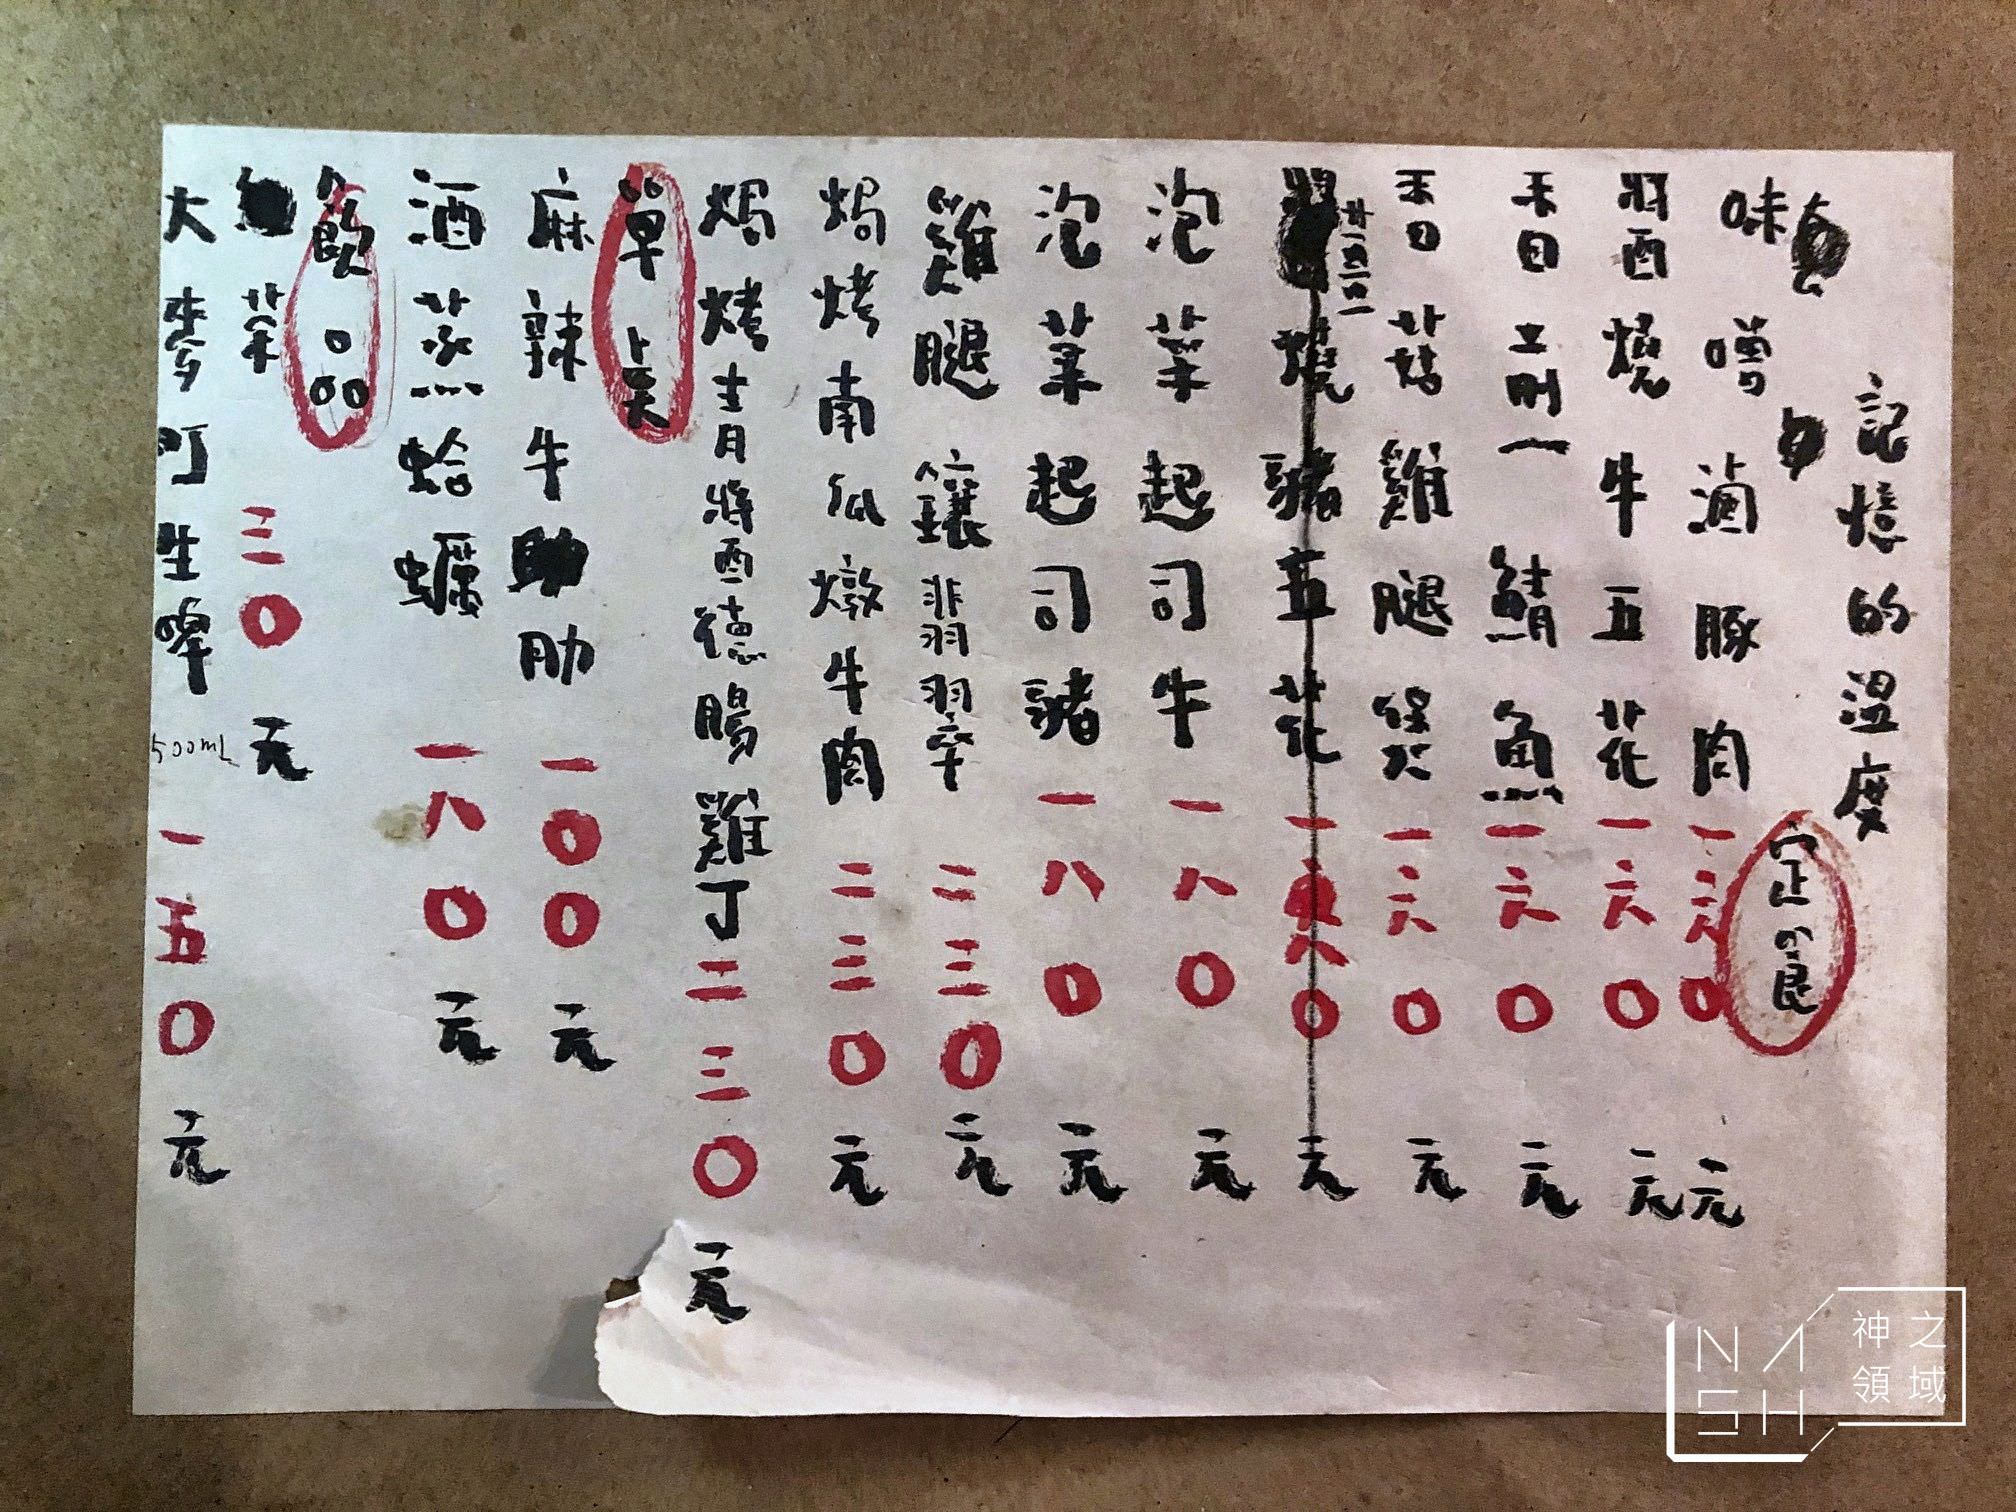 記憶的溫度
定食
味噌滷豚肉一六0元
醬燒牛五花一六0元
香煎一鯖魚一六0元
香菇雞腿煲一六0元
燒豬五花一八0元
泡菜起司牛一八0元
泡菜起司豬一八0元
雞腿鑲翡翠二三0元
焗烤南瓜燉牛肉二三0元
焗烤青醬德腸雞丁二三0元
單點
麻辣牛肋一00元
酒蒸蛤蠣一八0元
飲品
菜三0元
大麥町生啤500ml一五0元
NASH
神之
領域